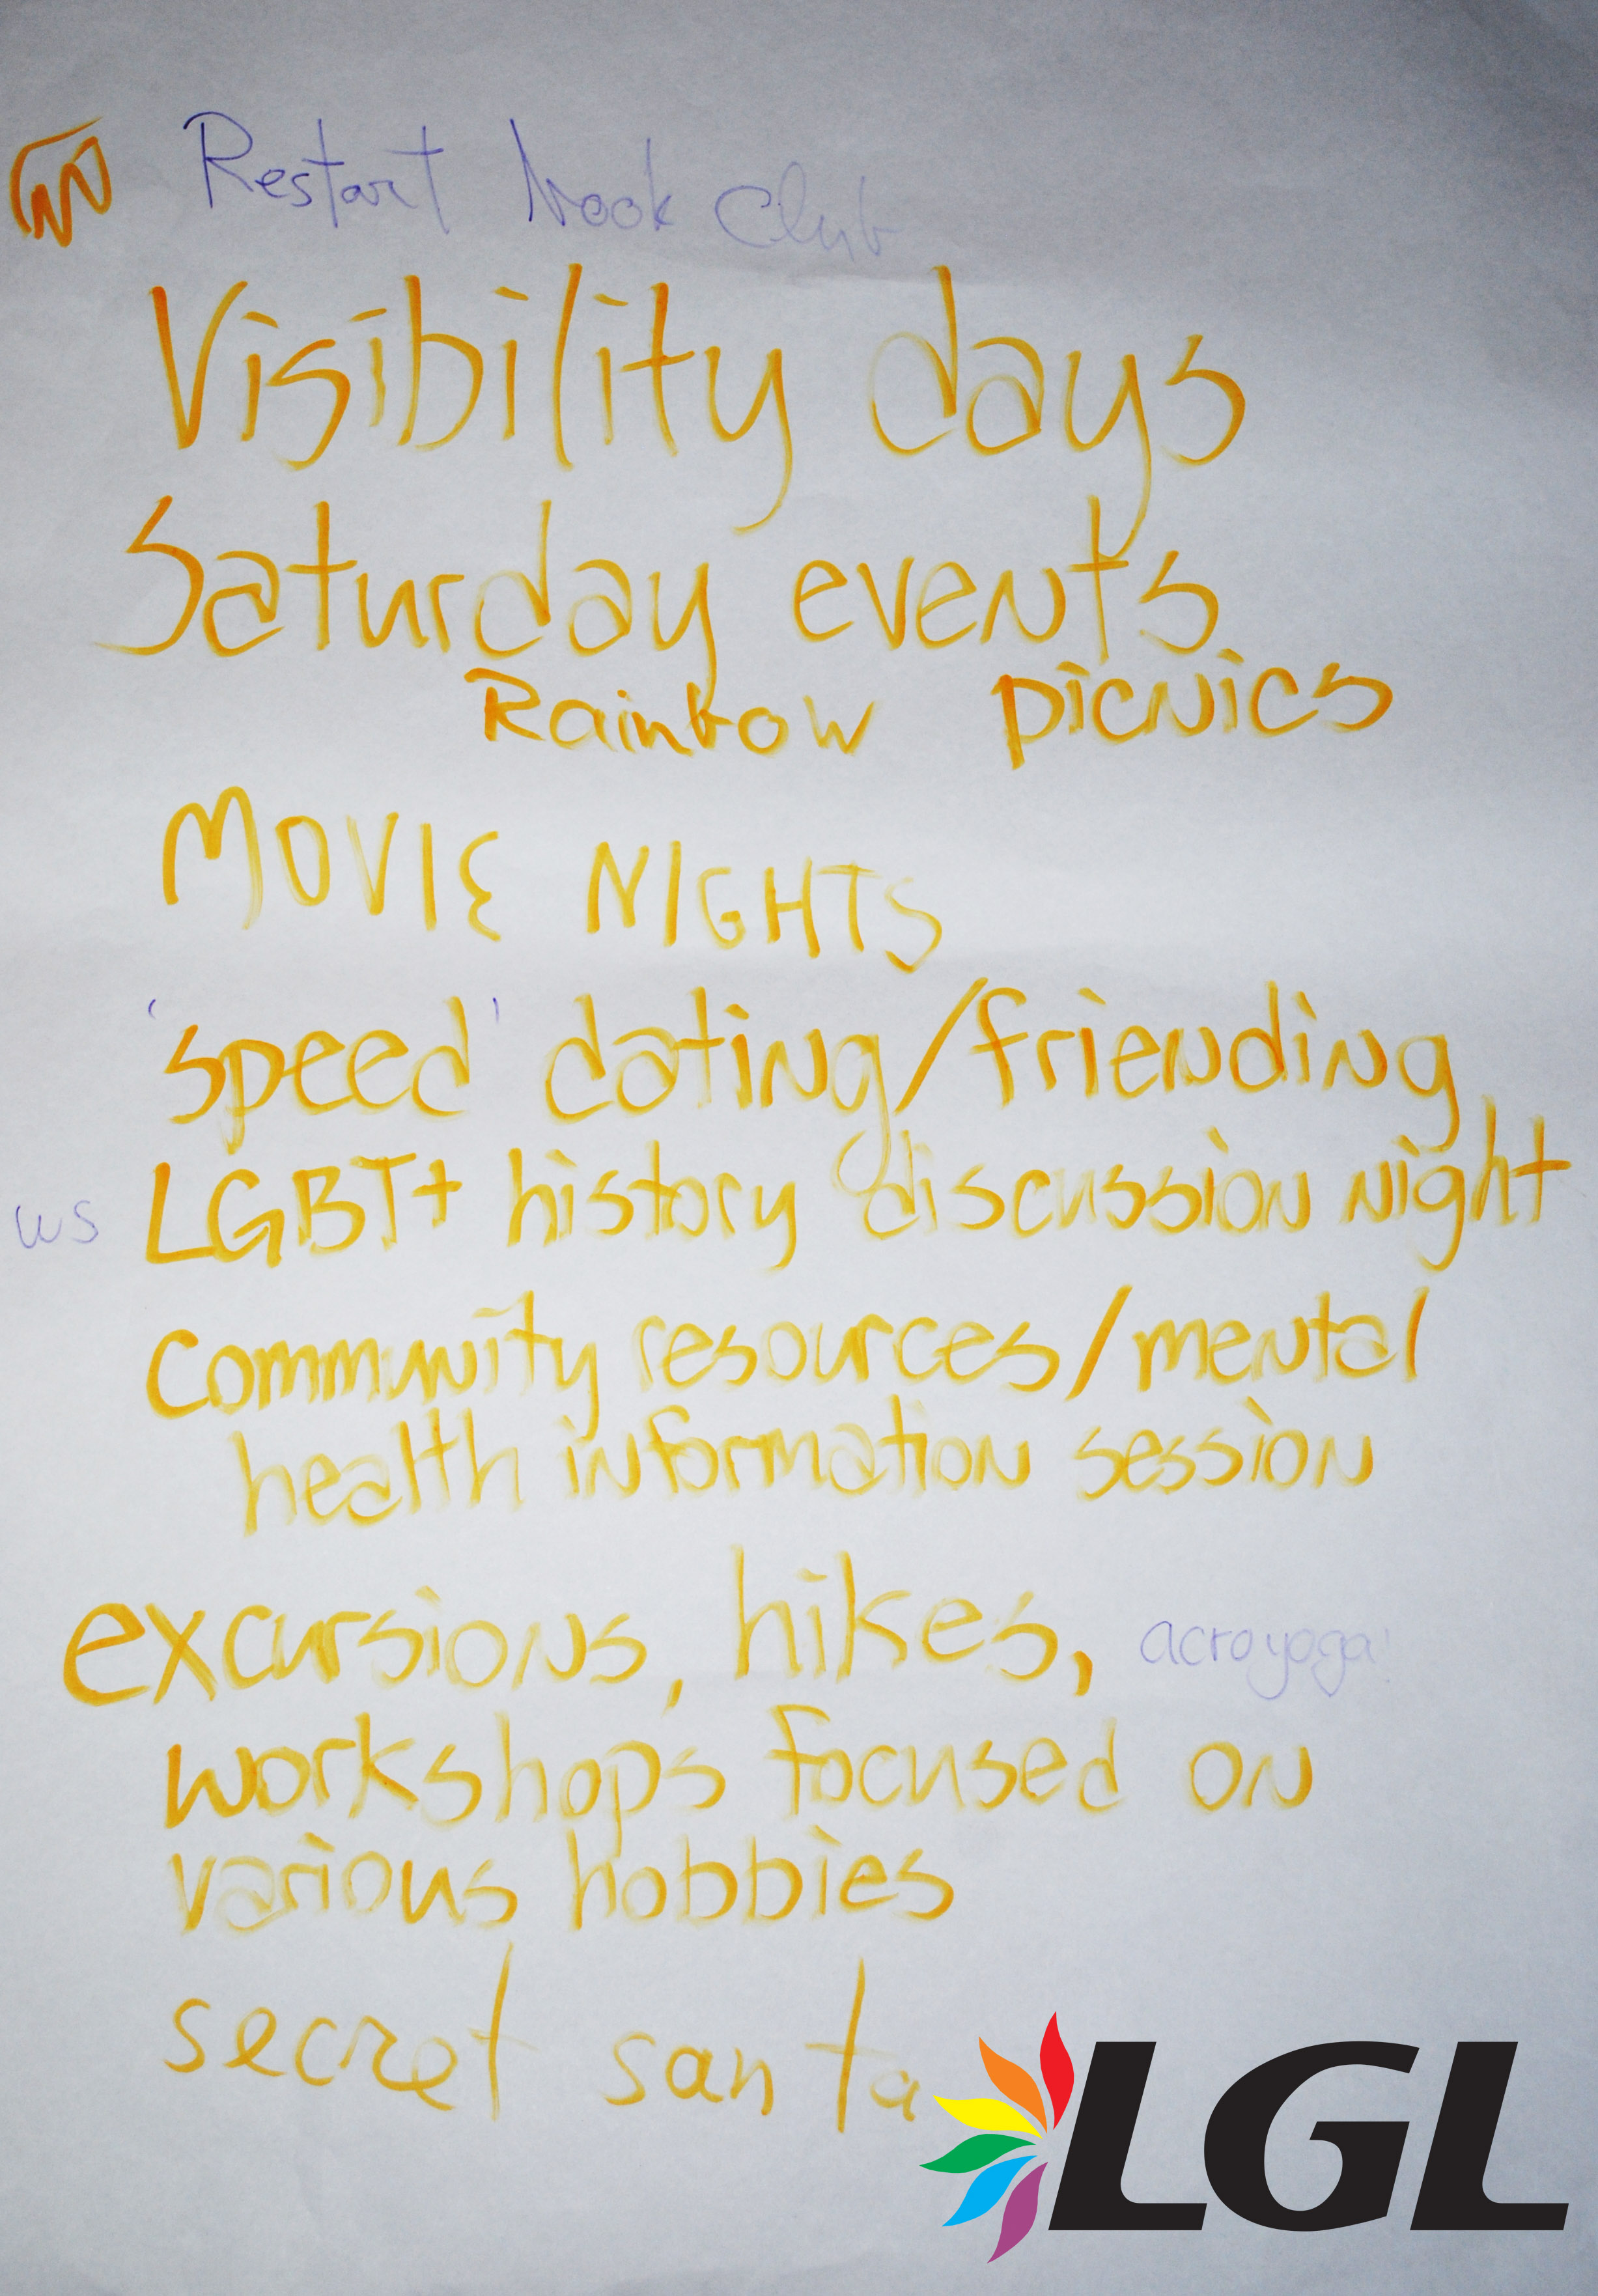 Restart Nook Club
Visibility days
Saturday events
Rainbow picnics
MOVIE NIGHTS
'speed' dating/friending
ws LGBT+ history discussion night
community resources/mental
health information session
excursions, hikes, acroyoga!
workshops focused on
various hobbies
secret santa
LGL